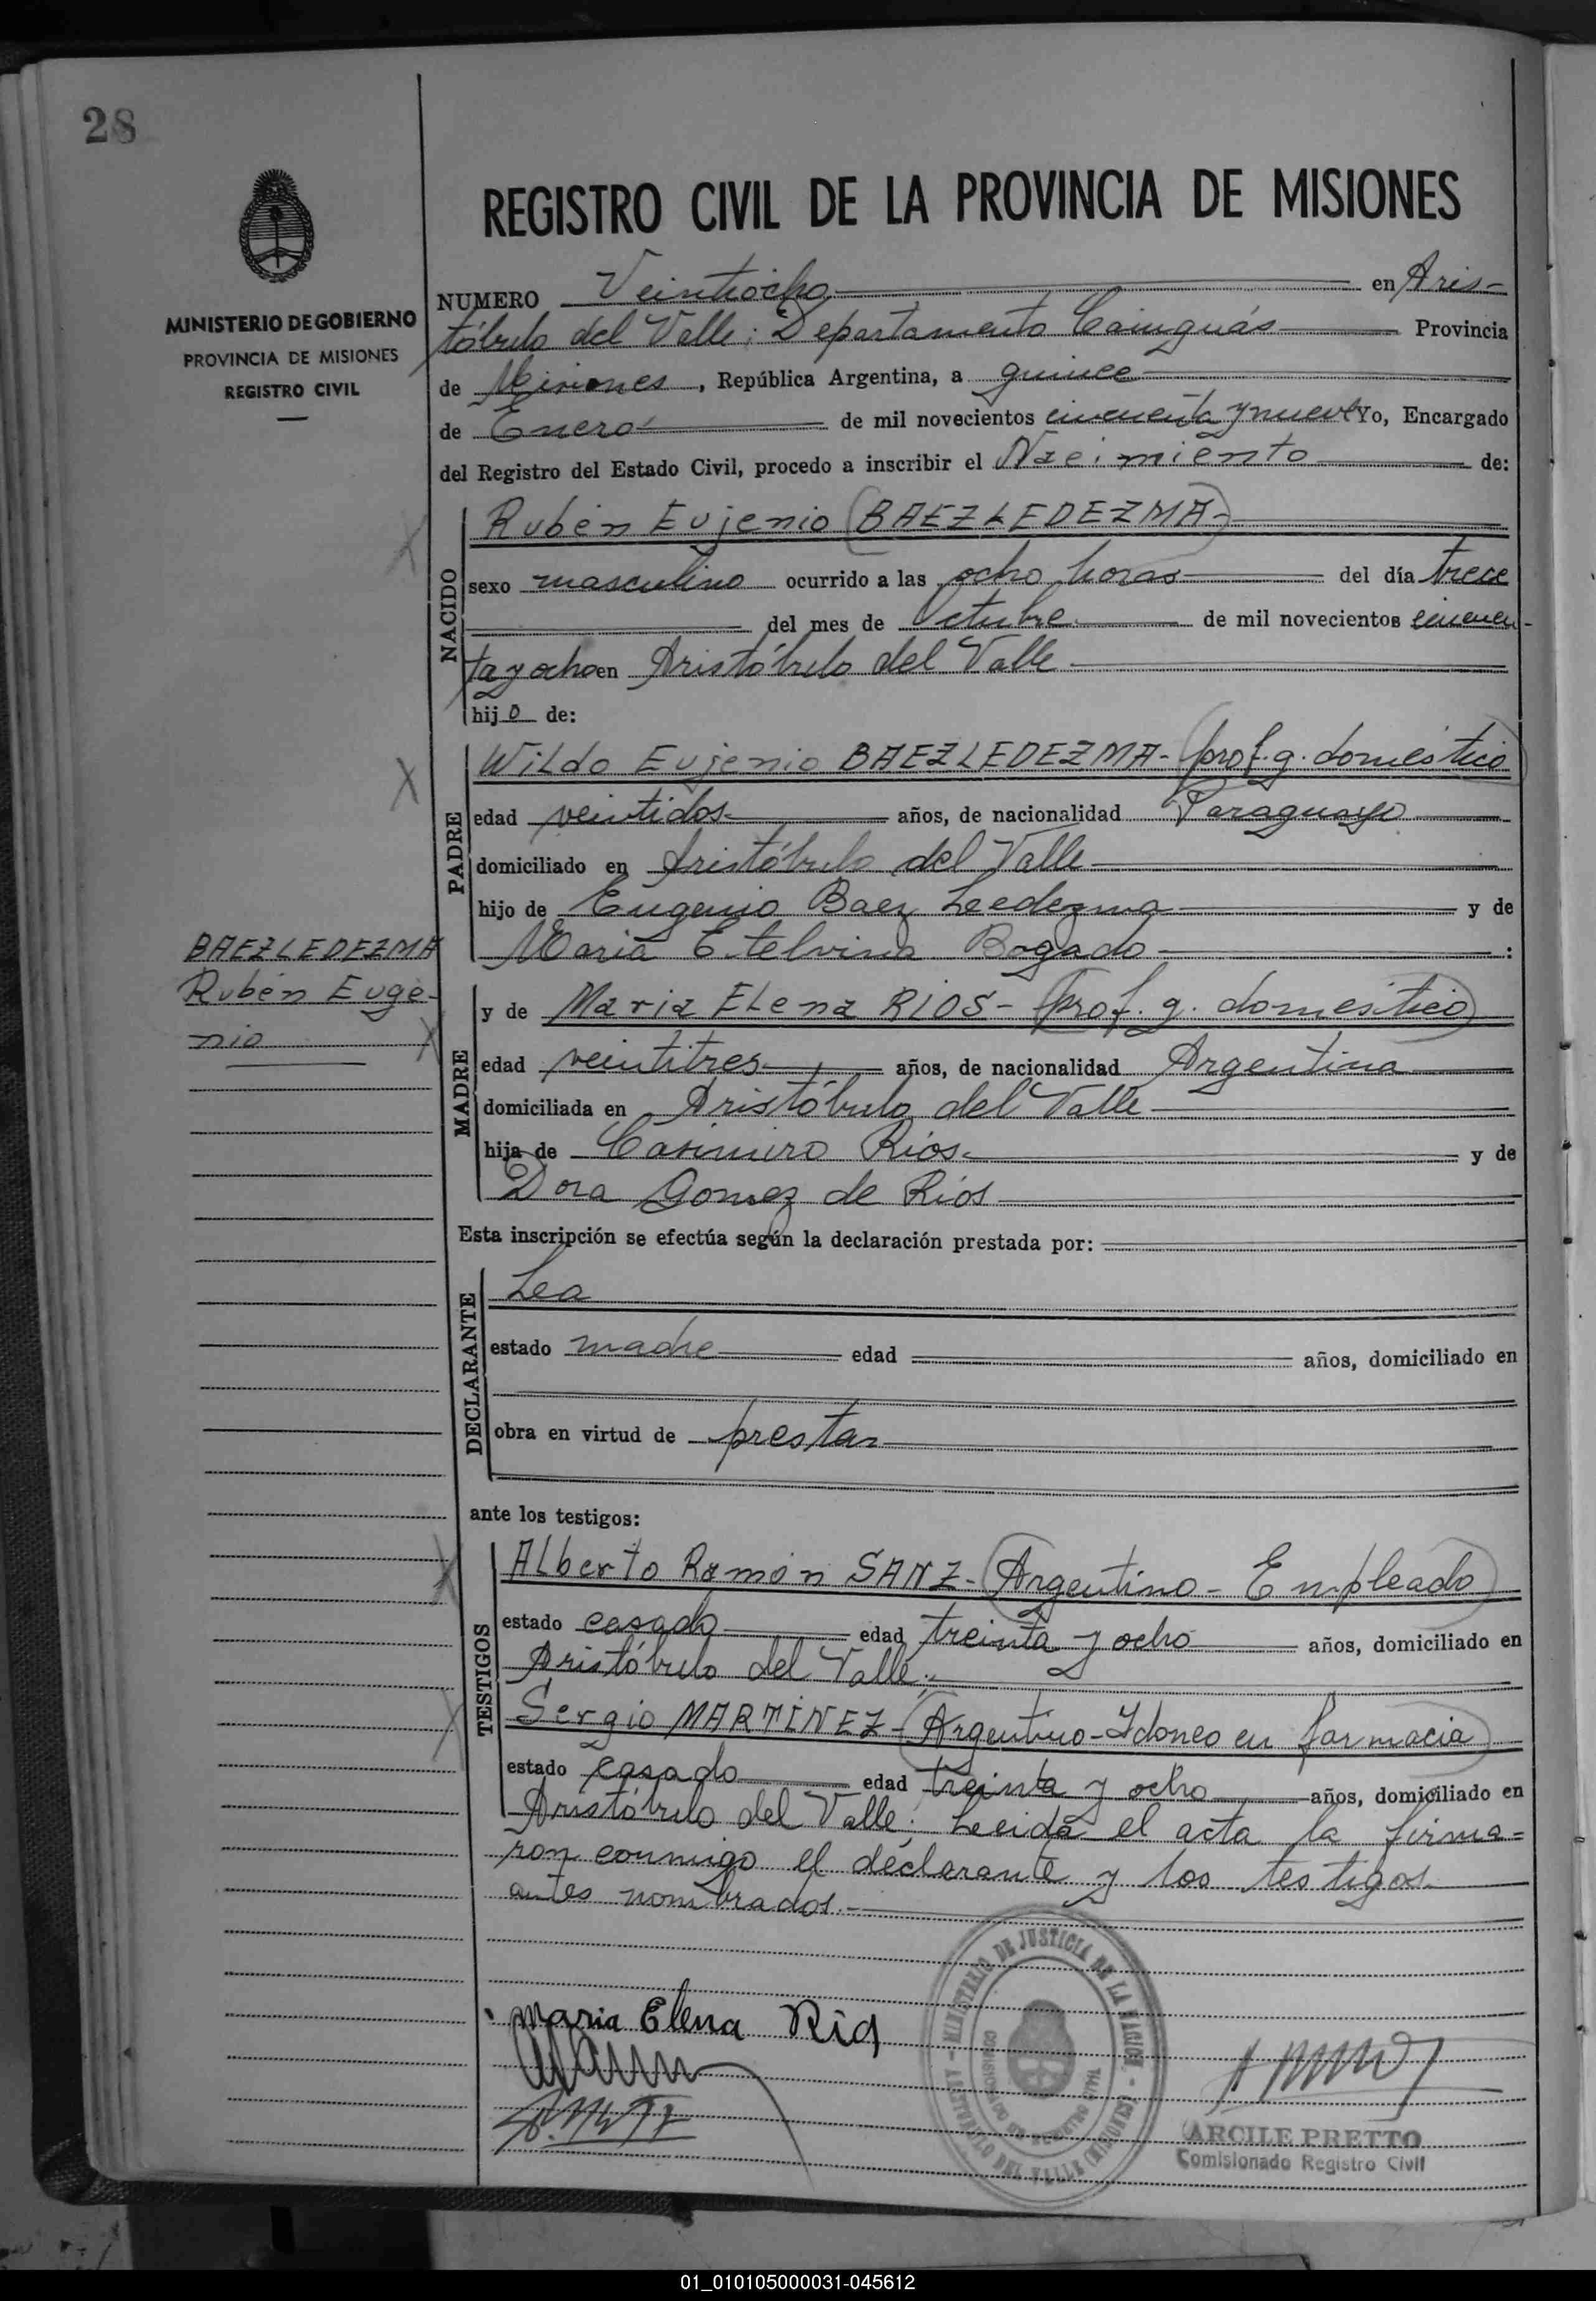 28
REGISTRO CIVIL DE LA PROVINCIA DE MISIONES
MINISTERIO DE GOBIERNO
PROVINCIA DE MISIONES
REGISTRO CIVIL
NUMERO Veintiocho en Aris-
tóbulo del Valle; Departamento Cainguás Provincia
de Misiones, República Argentina, a quince
de Enero de mil novecientos cincuenta y nueve Yo, Encargado
del Registro del Estado Civil, procedo a inscribir el Nacimiento de:
NACIDO
Rubén Eujenio (BAEZ LEDEZMA-)
sexo masculino ocurrido a las ocho horas del día trece
del mes de Octubre de mil novecientos cincuen-
ta y ocho en Aristóbulo del Valle
hijo de:
PADRE
Wildo Eujenio BAEZ LEDEZMA- (prof. g. doméstico
edad veintidos años, de nacionalidad Paraguayo
domiciliado en Aristóbulo del Valle
hijo de Eugenio Baez Leedezma y de
María Etelvina Bogado :
BAEZ LEDEZMA
Rubén Euge-
nio
MADRE
y de Maria Elena RIOS- (prof. g. doméstico)
edad veintitres años, de nacionalidad Argentina
domiciliada en Aristóbulo del Valle
hija de Casimiro Ríos y de
Dora Gomez de Ríos
Esta inscripción se efectúa según la declaración prestada por:
DECLARANTE
Lea
estado madre edad años, domiciliado en
obra en virtud de prestar
ante los testigos:
TESTIGOS
Alberto Ramón SANZ- (Argentino - Empleado)
estado casado edad treinta y ocho años, domiciliado en
Aristóbulo del Valle.
Sergio MARTÍNEZ- (Argentino - Idoneo en farmacia)
estado casado edad treinta y ocho años, domiciliado en
Aristóbulo del Valle; Leida el acta la firma=
ron conmigo el declarante y los testigos
antes nombrados.-
Maria Elena Rios
MINISTERIO DE JUSTICIA DE LA NACION - ARISTOBULO DEL VALLE (MISIONES)
ARCILE PRETTO
Comisionado Registro Civil
01_010105000031-045612